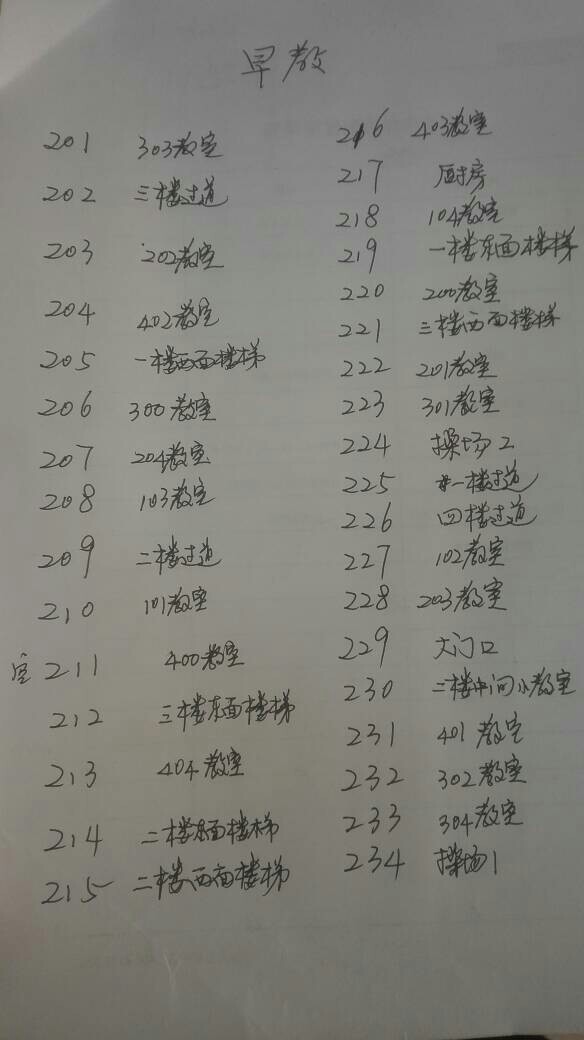 早教
201 303教室
202 三楼过道
203 202教室
204 402教室
205 一楼西面楼梯
206 300教室
207 204教室
208 103教室
209 二楼过道
210 101教室
211 400教室
212 三楼东面楼梯
213 404教室
214 二楼东面楼梯
215 二楼西面楼梯
216 403教室
217 厨房
218 104教室
219 一楼东面楼梯
220 200教室
221 三楼西面楼梯
222 201教室
223 301教室
224 操场2
225 一楼过道
226 四楼过道
227 102教室
228 203教室
229 大门口
230 二楼中间小教室
231 401教室
232 302教室
233 304教室
234 操场1